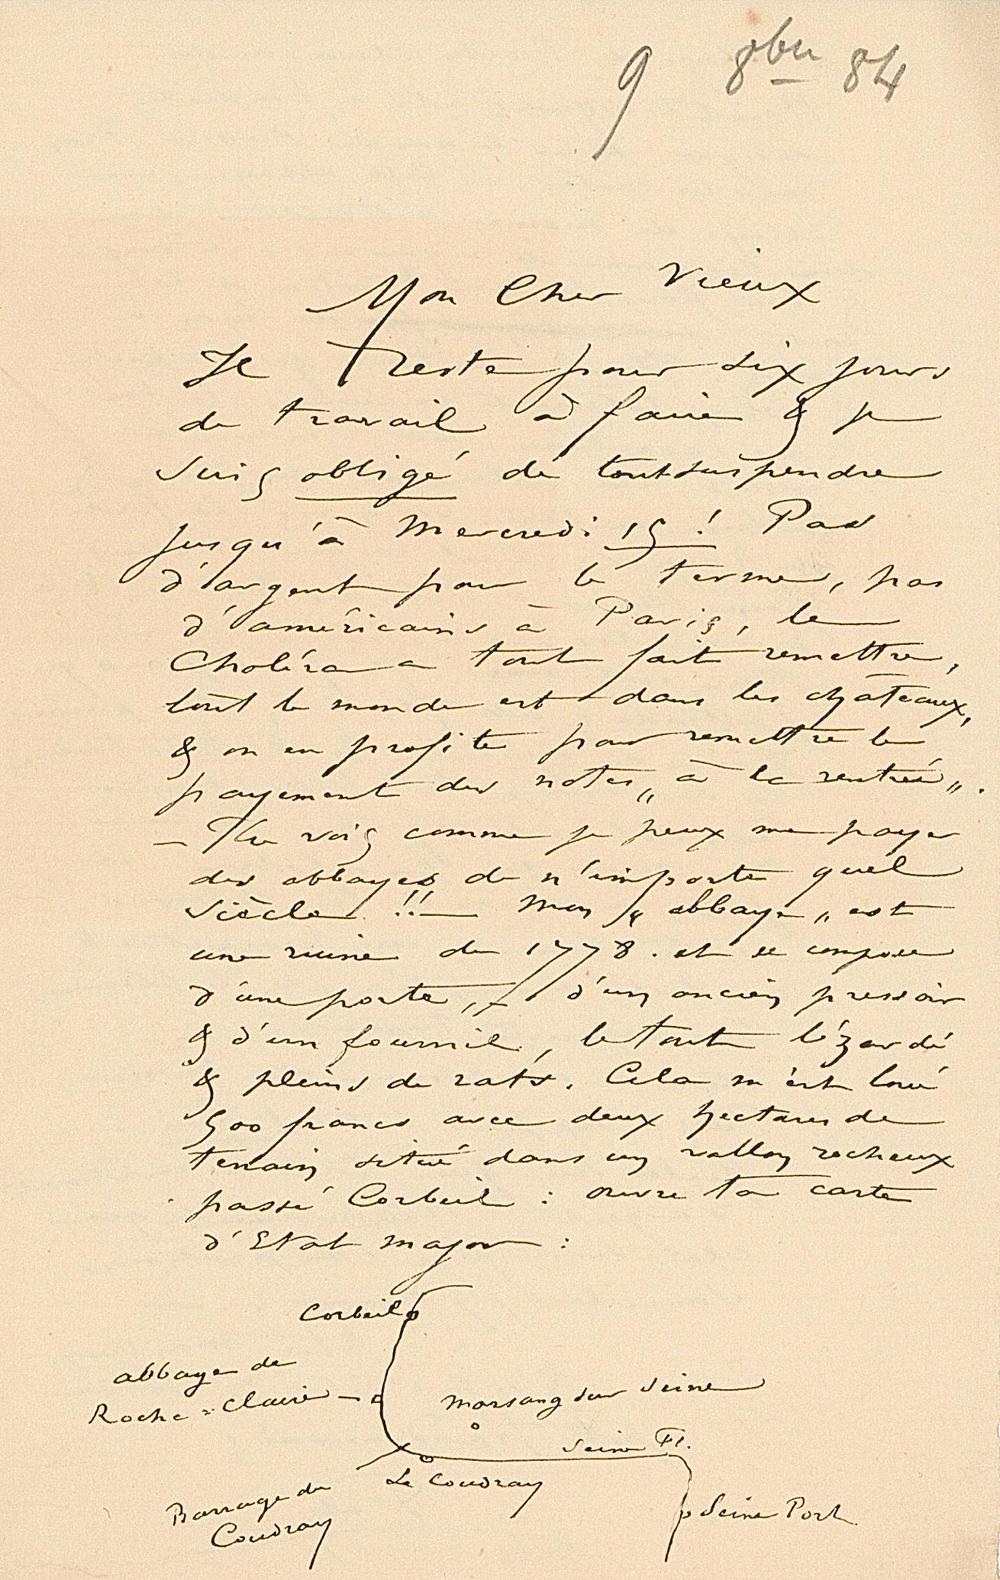 9 8bre 84
Mon Cher Vieux
Je reste pour six jours
de travail à faire & je
suis obligé de tout suspendre
jusqu'à Mercredi 15 ! Pas
d'argent pour le terme, pas
d'américains à Paris, le
Choléra a tout fait remettre,
tout le monde est dans les châteaux,
& on en profite pour remettre le
payement des notes „ à la rentrée „.
— Tu vois comme je peux me payer
des abbayes de n'importe quel
siècle !! — Mon „ abbaye „ est
une ruine de 1778. et se compose
d'une porte, d'un ancien pressoir
& d'un fournil, le tout lézardé
& pleins de rats. Cela m'est loué
500 francs avec deux hectares de
terrain situé dans un vallon rocheux
passé Corbeil : ouvre ta carte
d'Etat major :
Corbeil
abbaye de
Roche-Claire
Morsang sur Seine
Seine Fl.
Le Coudray
Barrage du
Coudray
Seine Port